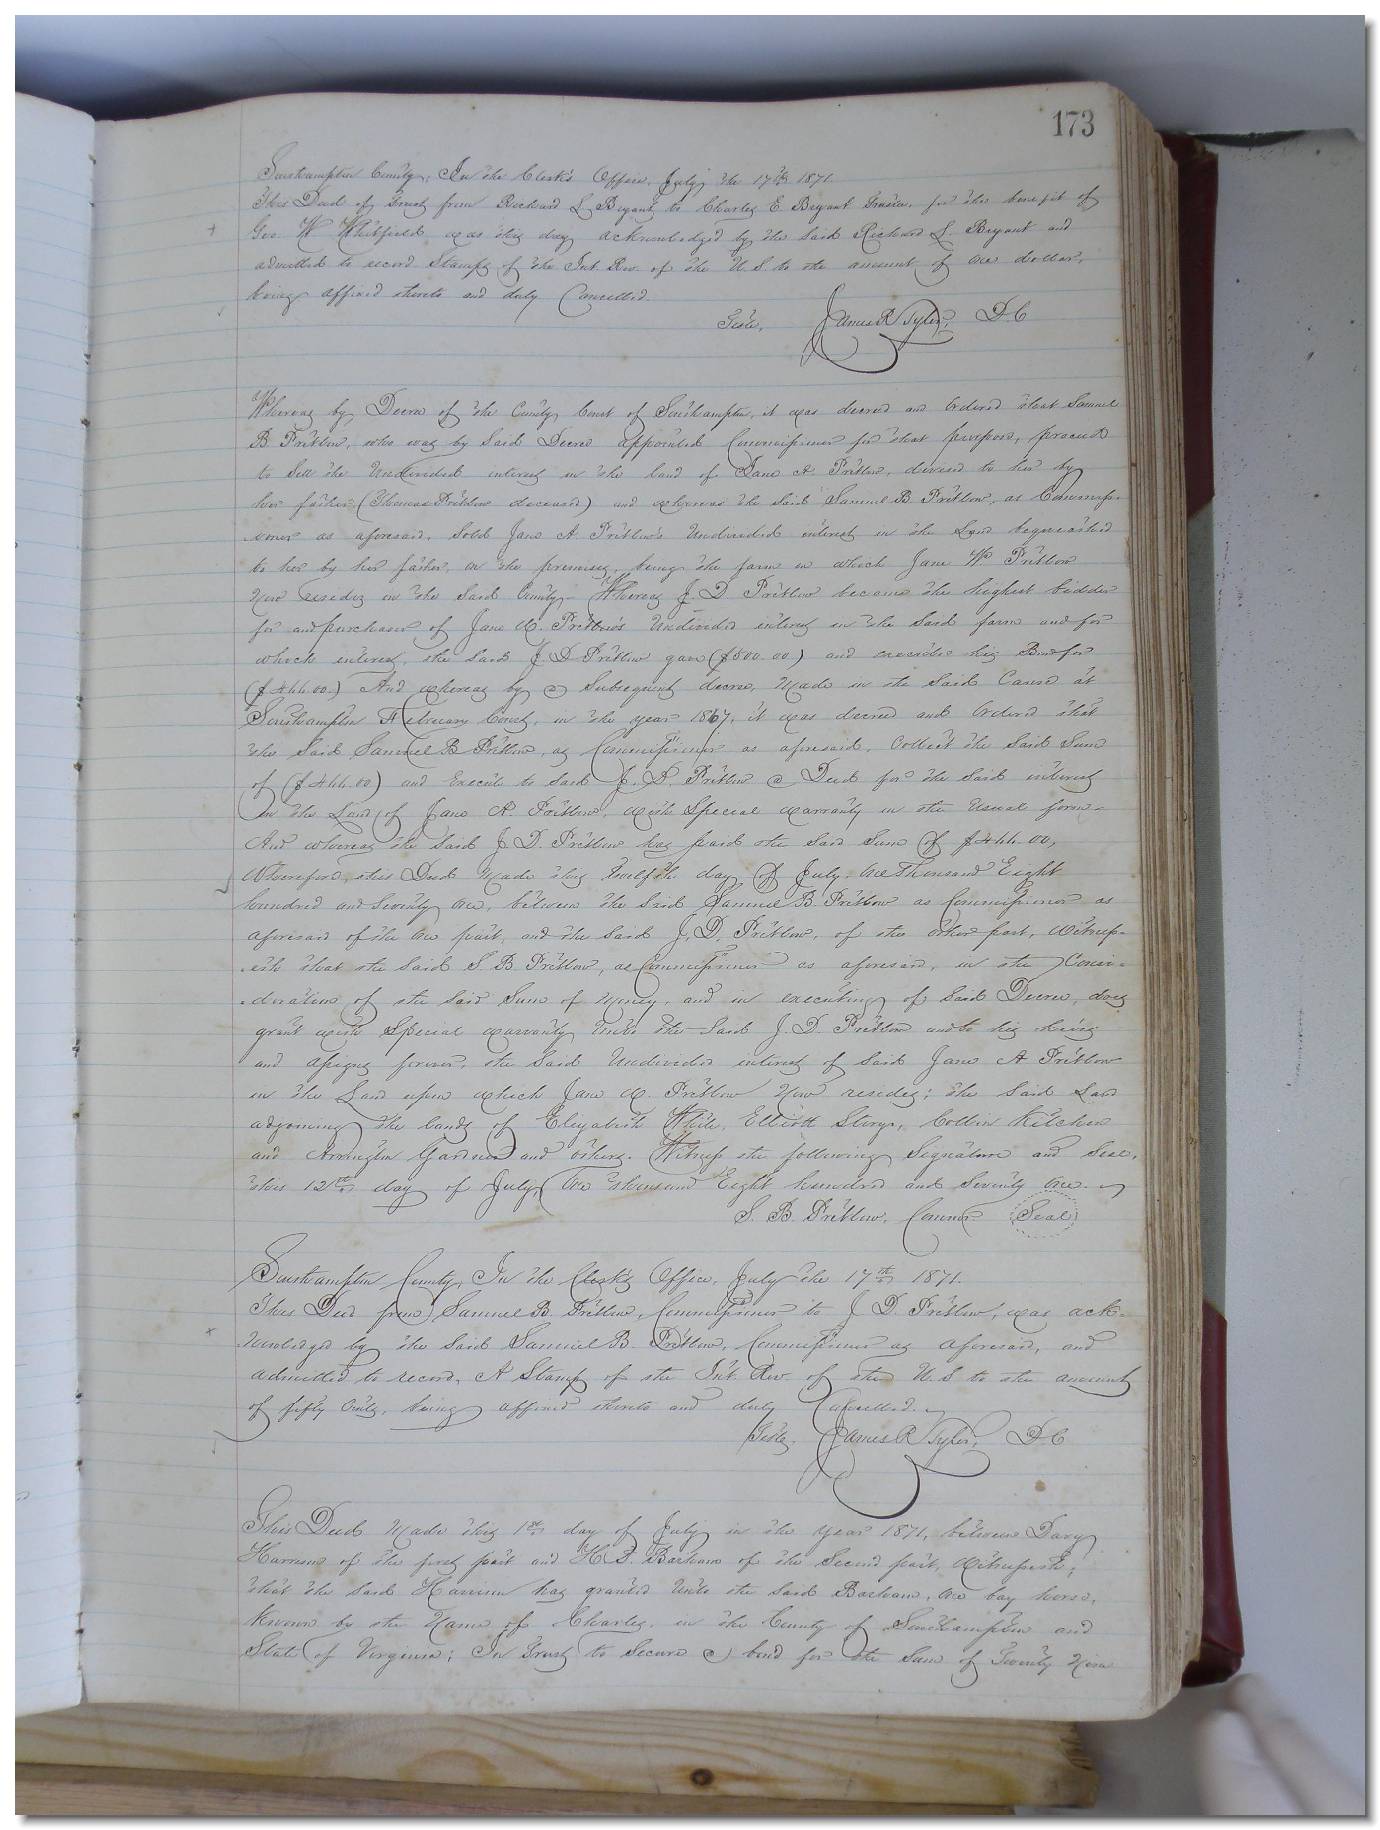 173
Southampton County, In the Clerk's Office, July the 17th 1871.
This Deed of Trust from Richard L Bryant to Charles E Bryant Trustee, for the benefit of
Geo W Whitfield was this day acknowledged by the said Richard L. Bryant and
admitted to record Stamps of the Int. Rev. of the U. S. to the amount of one dollar,
being affixed thereto and duly Cancelled.
Teste, James R Tyler, D C
Whereas by Decree of the County Court of Southampton, it was decreed and Ordered that Samuel
B Pretlow, who was by said Decree appointed Commissioner for that purpose, proceed
to sell the Undivided interest in the land of Jane A. Pretlow, devised to her by
her father (Thomas Pretlow deceased) and whereas the said Samuel B. Pretlow, as Commiss-
ioner as aforesaid, sold Jane A Pretlow's Undivided interest in the Land bequeathed
to her by her father, on the premises, being the farm on which Jane W. Pretlow
Now resides in the Said County - Whereas J. D Pretlow became the highest bidder
for and purchaser of Jane A. Pretlow's Undivided interest in the Said farm and for
which interest, the said J. D Pretlow gave ($500.00) and executed his Bond for
($466.00) And whereas by a Subsequent decree, Made in the Said Cause at
Southampton February Court, in the year 1867, it was decreed and Ordered that
the Said Samuel B Pretlow, as Commissioner as aforesaid, Collect the Said Sum
of ($466.00) and Execute to said J. D. Pretlow a Deed for the Said interest
in the Land of Jane A. Pretlow, with Special warranty in the Usual form-
And whereas the Said J. D. Pretlow has paid the Said Sum of $466.00,
Wherefore, this Deed Made this twelfth day of July, One Thousand Eight
hundred and Seventy One, between the Said Samuel B. Pretlow as Commissioner as
aforesaid of the One part, and the Said J. D. Pretlow, of the other part, Witness-
eth that the Said S. B Pretlow, as Commissioner as aforesaid, in the Consi-
deration of the Said Sum of Money, and in executing of Said Decree, does
grant with Special warranty Unto the Said J. D Pretlow and to his heirs
and assigns forever, the Said Undivided interest of Said Jane A Pretlow
in the Land upon which Jane W. Pretlow Now resides; the Said Land
adjoining the lands of Elizabeth White, Elliott Story, Collin Kitchen
and Arrington Gardner and others. Witness the following Signature and Seal,
this 12th day of July, One thousand Eight hundred and Seventy One.
S. B. Pretlow, Commr Seal
Southampton County, In the Clerk's Office, July the 17th 1871.
This Deed from Samuel B. Pretlow, Commissioner to J. D. Pretlow, was ack-
nowledged by the Said Samuel B. Pretlow, Commissioner as aforesaid, and
admitted to record, A Stamp of the Int. Rev. of the U. S to the amount
of fifty Cents, being affixed thereto and duly Cancelled.
Teste, James R Tyler, D C
This Deed Made this 1st day of July in the year 1871, between Davy
Harrison of the first part and H. B. Barham of the Second part, Witnesseth;
that the said Harrison has granted Unto the said Barham, One bay horse,
Known by the Name of Charley, in the County of Southampton and
State of Virginia; In Trust to Secure a bond for the Sum of Twenty Nine